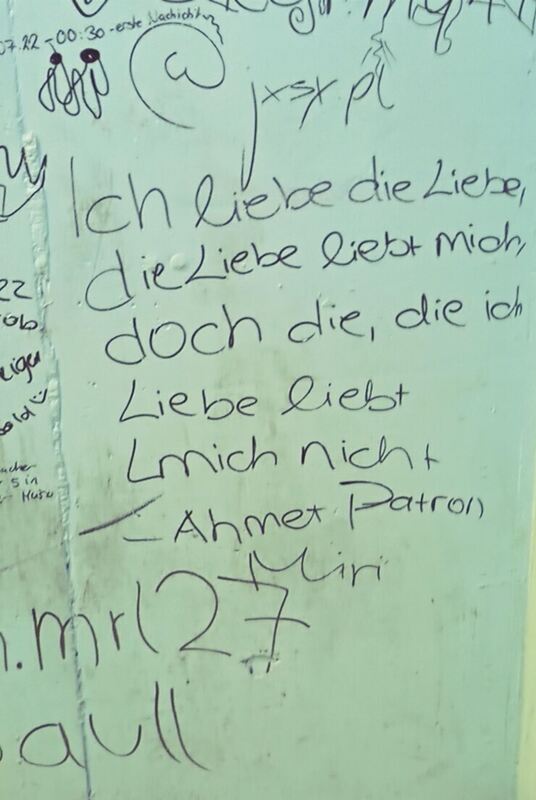 07.22-00:30-erste Nachricht
@
jxsx.pl
Ich liebe die Liebe,
die Liebe liebt mich,
doch die, die ich
Liebe liebt
mich nicht
- Ahmet Patron
Miri
.mrl27
aull
22
ob
5 in